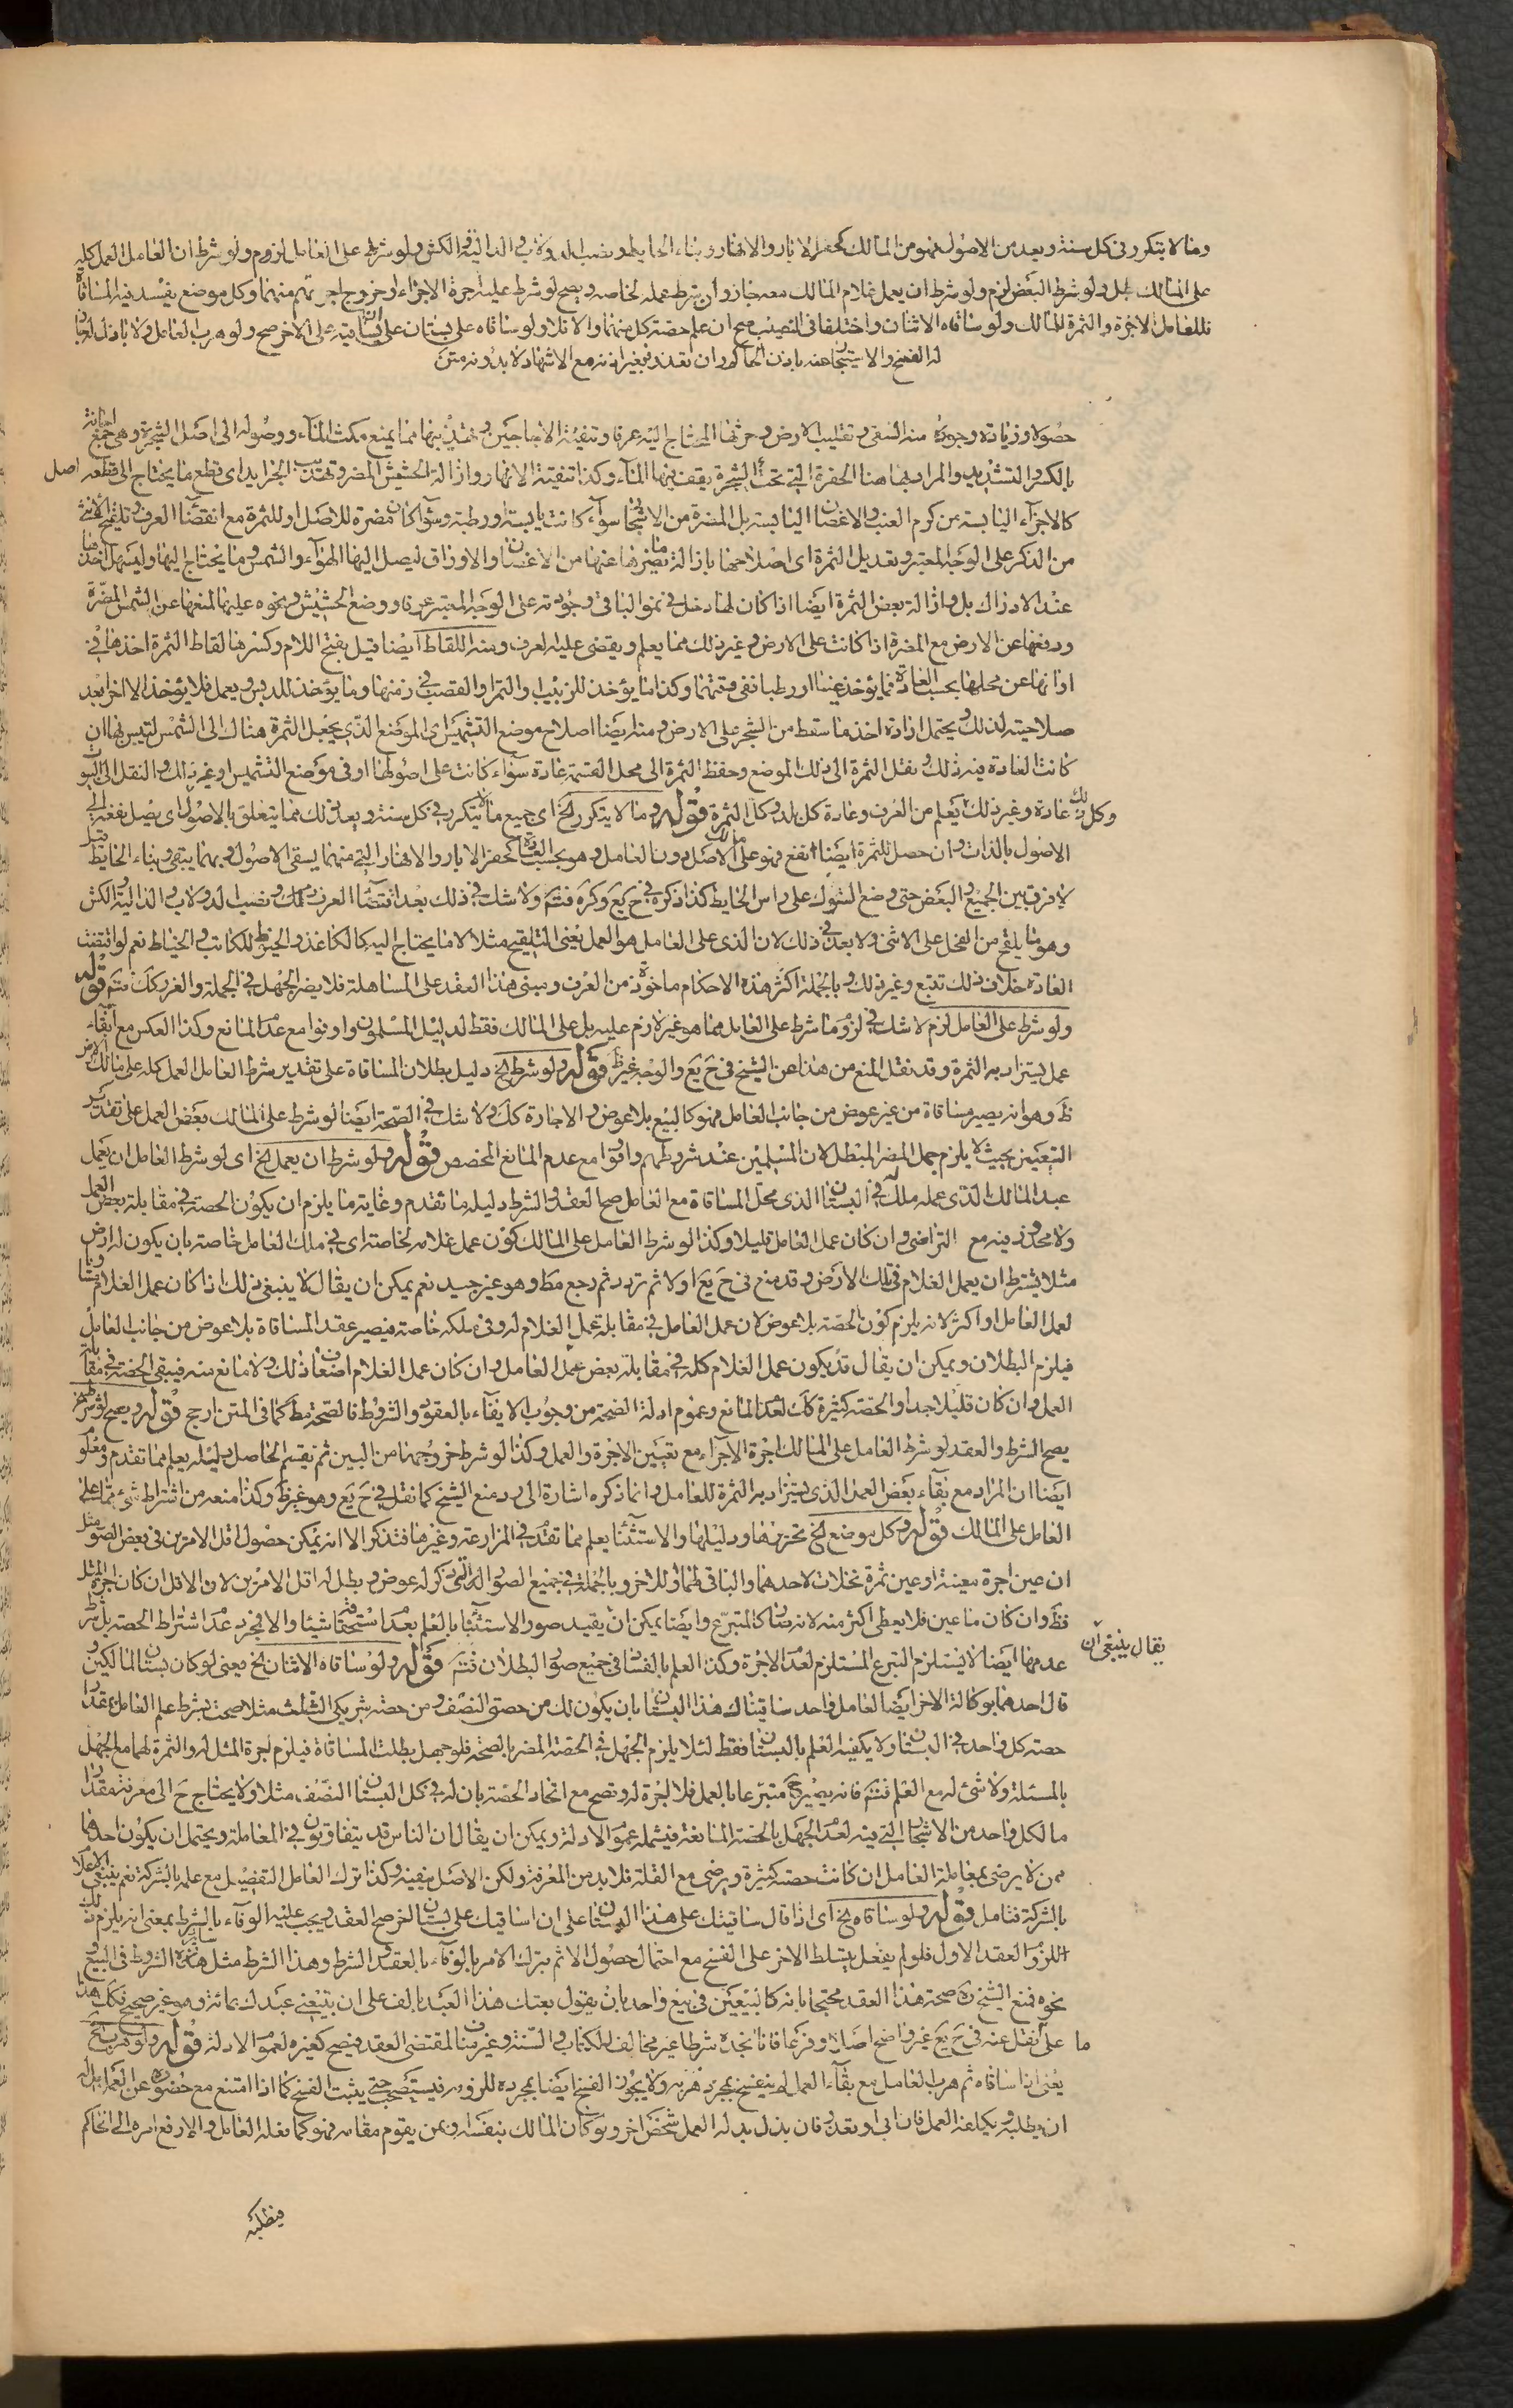 وما لا يتكرر في كل سنة ويعد من الاصول فهو من المالك كحفر الابار والانهار وبناء الحايط ونصب الدولاب والدالية والكش ولو شرط على العامل لزم ولو شرط ان العامل العمل كله
على المالك بطل ولو شرط البعض لزم ولو شرط ان يعمل غلام المالك معه جاز وان شرط عمله لخاصه ويصح لو شرط عليه اجرة الاجراء او خروج اجرتهم منهما وكل موضع يفسد فيه المساقاة
فللعامل الاجرة والثمرة للمالك ولو ساقاه الاثنان واختلفا في النصيب صح ان علم حصة كل منهما والا فلا ولو ساقاه على بستان على ان يساقيه على الاخر صح ولو هرب العامل ولا باذل
له الفسخ والاستيجار عنه باذن الحاكم وان تعذر فبغير اذنه مع الاشهاد لا بدونه متن
حصوله وزيادته وجودته منه السقي وتقليب الارض وحرثها المحتاج اليه عرفا وتنقية الاجاجين وتهذيبها مما يمنع مكث الماء ووصوله الى اصل الشجرة وهي جمع اجانة
بالكسر والتشديد والمراد بها هنا الحفرة التي تحت الشجرة يقف فيها الماء وكذا تنقية الانهار وازالة الحشيش المضر وتهذيب الجرايد اى قطع ما يحتاج الى قطعه اصل
كالاجزاء اليابسة من كرم العنب والاغصان اليابسة بل المضرة من الاشجار سواء كانت يابسة او رطبة وسواء كان مضرة للاصل او للثمرة مع اقتضاء العرف وتلقيح الانثى
من الذكر على الوجه المعتبر وتعديل الثمرة اى اصلاحها بازالة ما يضرها عنها من الاغصان والاوراق ليصل اليها الهواء والشمس وما يحتاج اليها وليسهل اخذها
عند الادراك بل وازالة بعض الثمرة ايضا اذا كان لها دخل في نمو الباقي وجودته على الوجه المعتبر عرفا ووضع الحشيش ونحوه عليها لمنعها عن الشمس المضرة
ورفعها عن الارض مع المضرة اذا كانت على الارض وغير ذلك مما يعلم ويقضى عليه العرف ومنه اللقاط ايضا قيل بفتح اللام وكسرها لقاط الثمرة اخذها في
اوانها عن محلها بحسب العادة فما يؤخذ عنبا او رطبا ففي وقتهما وكذا ما يؤخذ للزبيب والتمر والقصب في زمنها وما يؤخذ للدبس ويعمل فلا يؤخذ الا اخرا بعد
صلاحيته لذلك ويحتمل ارادة اخذ ما سقط من الشجر على الارض ومنه ايضا اصلاح موضع التشميس اى الموضع الذى يجعل الثمرة هناك الى الشمس لتيبس فيها ان
كانت العادة فيه ذلك ونقل الثمرة الى ذلك الموضع وحفظ الثمرة الى محل القسمة عادة سواء كانت على اصولها او في موضع التشميس او غير ذلك والنقل الى البيوت
وكل ذلك عادة وغير ذلك يعلم من العرف وعادة كل بلد وكل الثمرة قوله وما لا يتكرر الخ اى جميع ما لا يتكرر في كل سنة ويعد ذلك مما يتعلق بالاصول اى يصل نفعه الى
الاصول بالذات وان حصل للثمرة ايضا نفع فهو على مالك الاصل دون العامل وهو بحسب العادة كحفر الابار والانهار التي منهما يسقى الاصول وبهما يبقى وبناء الحايط
لا فرق بين الجميع والبعض حتى وضع الشوك على راس الحايط كذا ذكره في ح يع وكره فتم ولا شك في ذلك بعد اقتضاء العرف ذلك ونصب الدولاب والدالية والكش
وهو ما يلقح من الفحل على الانثى ولا بعد في ذلك لان الذى على العامل هو العمل يعنى التلقيح مثلا لا ما يحتاج اليه كالكاغذ والخيط للكاتب والخياط نعم لو اقتضت
العادة خلاف ذلك تتبع وغير ذلك وبالجملة اكثر هذه الاحكام ماخوذة من العرف ومبنى هذا العقد على المساهلة فلا يضر الجهل في الجملة والغرر كك فتم قوله
ولو شرط على العامل لزم لا شك في لزوم ما شرط على العامل مما هو غير لازم عليه بل على المالك فقط لدليل المسلمون واوفوا مع عدم المانع وكذا العكس مع ابقاء
عمل يستزاد به الثمرة وقد نقل المنع من هذا عن الشيخ في ح يع والوجه غير ظ قوله ولو شرط الخ دليل بطلان المساقاة على تقدير شرط العامل العمل كله على مالك الارض
ظ وهو انه يصير مساقاة من غير عوض من جانب العامل فهو كالبيع بلا عوض والاجارة كك ولا شك في الصحة ايضا لو شرط على المالك بعض العمل على تقدير
التعيين بحيث لا يلزم جهل المضر المبطل لان المسلمين عند شروطهم واوفوا مع عدم المانع المخصص قوله ولو شرط ان يعمل الخ اى لو شرط العامل ان يعمل
عبد المالك الذى عمله ملك له في البستان الذى محل المساقاة مع العامل صح العقد والشرط دليله ما تقدم وغاية ما يلزم ان يكون الحصة في مقابلة بعض العمل
ولا محذور فيه مع التراضى وان كان عمل العامل قليلا وكذا لو شرط العامل على المالك كون عمل غلامه لخاصته اى في ملك العامل خاصة بان يكون له ارض
مثلا يشترط ان يعمل الغلام في تلك الارض وقد منع في ح يع اولا ثم تردد ثم رجع مط وهو غير جيد نعم يمكن ان يقال لا ينبغى ذلك اذا كان عمل الغلام مساويا
لعمل العامل او اكثر لانه يلزم كون الحصة بلا عوض لان عمل العامل في مقابلة عمل الغلام له وفي ملكه خاصة فيصير عقد المساقاة بلا عوض من جانب العامل
فيلزم البطلان ويمكن ان يقال قد يكون عمل الغلام كله في مقابلة بعض عمل العامل وان كان عمل الغلام اضعاف ذلك ولا مانع منه فيبقى الحصة في مقابلة
العمل وان كان قليلا جدا والحصة كثيرة كك لعدم المانع وعموم ادلة الصحة من وجوب الايفاء بالعقود والشروط فالصحة مط كما في المتن ارجح قوله ويصح لو شرط الخ
يصح الشرط والعقد لو شرط العامل على المالك اجرة الاجراء مع تعيين الاجرة والعمل وكذا لو شرط خروجها من البين ثم يقسم الحاصل ودليله يعلم مما تقدم ومعلوم
ايضا ان المراد مع بقاء بعض العمل الذى يستزاد به الثمرة للعامل وانما ذكره اشارة الى رد منع الشيخ كما نقل في ح يع وهو غير ظ وكذا منعه من اشتراط شئ مما على
العامل على المالك قوله وكل موضع الخ تحريرها ودليلها والاستثناء يعلم مما تقدم في المزارعة وغيرها فتذكر الا انه يمكن حصول اقل الامرين في بعض الصور مثل
ان عين اجرة معينة او عين ثمرة نخلات لاحدهما والباقي لهما او للاخر وبالجملة في جميع الصور التى ذكر له عوض وبطل له اقل الامرين لان الاقل ان كان اجرة المثل
فظ وان كان ما عين فلا يعطى اكثر منه لانه صار كالمتبرع وايضا يمكن ان يقيد صور الاستثناء بالعلم بعدم استحقاق شيئا والا فمجرد عدم اشتراط الحصة بل شرط
يقال ينبغى ان
عدمها ايضا لا يستلزم التبرع المستلزم لعدم الاجرة وكذا العلم بالفساد في جميع صور البطلان فتم قوله ولو ساقاه الاثنان الخ يعنى لو كان بستان لمالكين
قال احدهما بوكالة الاخر ايضا لعامل واحد ساقيناك هذا البستان بان يكون لك من حصتى النصف ومن حصة شريكى الثلث مثلا صحت بشرط علم العامل بمقدار
حصة كل واحد في البستان ولا يكفيه العلم بالبستان فقط لئلا يلزم الجهل في الحصة المضر بالصحة فلو جهل بطلت المساقاة فيلزم اجرة المثل له والثمرة لهما مع الجهل
بالمسئلة ولا شئ له مع العلم فتم فانه يصير ح متبرعا بالعمل فلا اجرة له وتصح مع اتحاد الحصة بان له في كل البستان النصف مثلا ولا يحتاج ح الى معرفة مقدار
ما لكل واحد من الاشجار التى فيه لعدم الجهل بالحصة المانعة فيشمله عموم الادلة ويمكن ان يقال ان الناس قد يتفاوتون في المعاملة ويحتمل ان يكون احدهما
ممن لا يرضى بمعاملة العامل ان كانت حصته كثيرة ويرضى مع القلة فلا بد من المعرفة ولكن الاصل ينفيه وكذا ترك العامل التفصيل مع علمه بالشركة نعم ينبغى الاعلام
بالشركة فتامل قوله ولو ساقاه الخ اى اذا قال ساقيتك على هذا البستان على ان اساقيك على بستان اخر صح العقد ويجب عليه الوفاء بالشرط بمعنى انه يلزم ذلك
للزوم العقد الاول فلو لم يفعل يتسلط الاخر على الفسخ مع احتمال حصول الاثم بترك الامر بالوفاء بالعقد والشرط وهذا الشرط مثل سائر الشروط في البيع
نحوه فمنع الشيخ ره صحة هذا العقد محتجا بانه كالبيعين في بيع واحد بان يقول بعتك هذا العبد بالف على ان يتبعنى عبدك بمائة وهو غير صحيح فكك هذا
على ما نقل عنه في ح يع غير واضح اصلا وفرعا فانا نجده شرطا غير مخالف للكتاب والسنة وغير مناف لمقتضى العقد فيصح كغيره لعموم الادلة قوله ولو هرب الخ
يعنى اذا ساقاه ثم هرب العامل مع بقاء العمل لم ينفسخ بمجرد هربه ولا يجوز الفسخ ايضا بمجرده للزومه فيستصحب حتى يثبت الفسخ كما اذا امتنع مع حضوره عن العمل بل له
ان يطلبه ويكلفه العمل فان ابى او تعذر فان بذل بدله العمل شخص اخر ولو كان المالك بنفسه او بمن يقوم مقامه فهو كما فعله العامل والا رفع امره الى الحاكم
فيطلبه